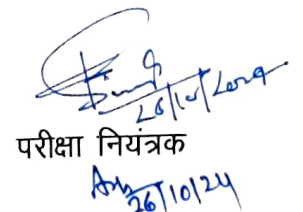 26/10/2024
परीक्षा नियंत्रक
26/10/24